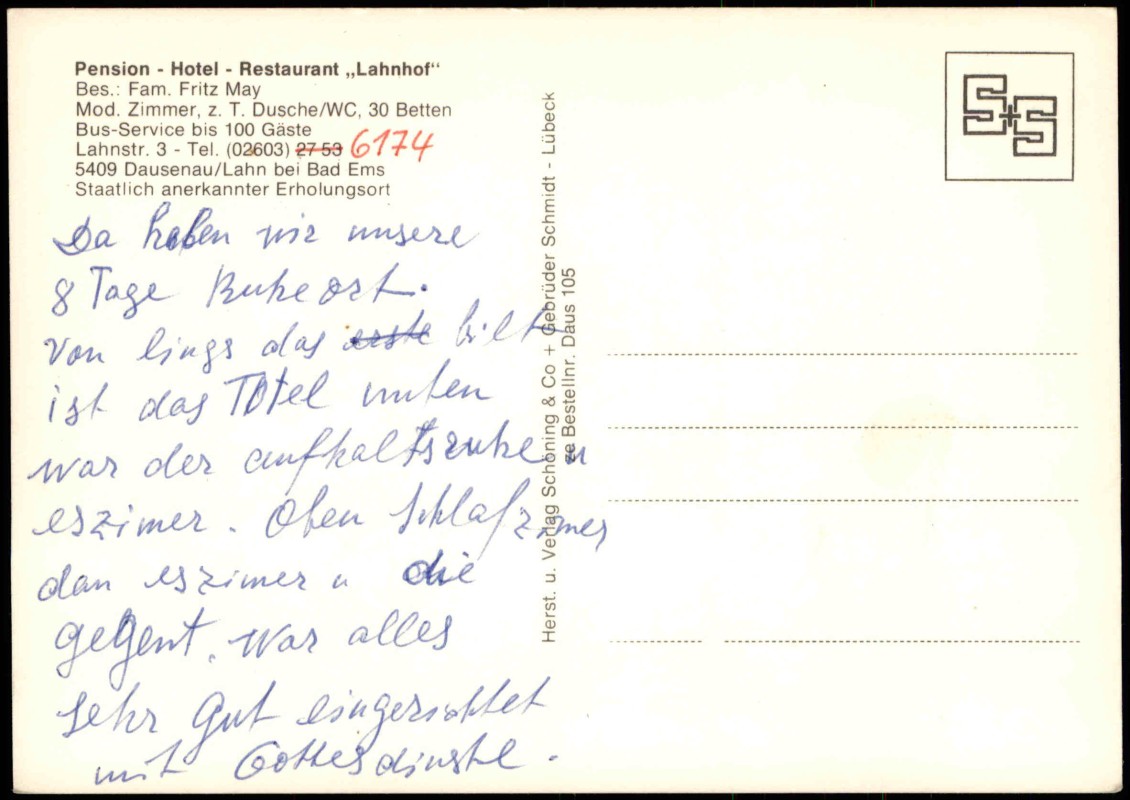 Pension - Hotel - Restaurant „Lahnhof“
Bes.: Fam. Fritz May
Mod. Zimmer, z. T. Dusche/WC, 30 Betten
Bus-Service bis 100 Gäste
Lahnstr. 3 - Tel. (02603) 27 53 6174
5409 Dausenau/Lahn bei Bad Ems
Staatlich anerkannter Erholungsort
Da haben wir unsere
8 Tage Ruheort.
Von lings das erste bilt
ist das Hotel unten
war der aufhaltsruhe u
eszimer. Oben Schlafzimer
dan eszimer u die
gegent. War alles
sehr Gut eingerichtet
mit Gottesdinste.
Herst. u. Verlag Schöning & Co + Gebrüder Schmidt - Lübeck
ze Bestellnr. Daus 105
S+S